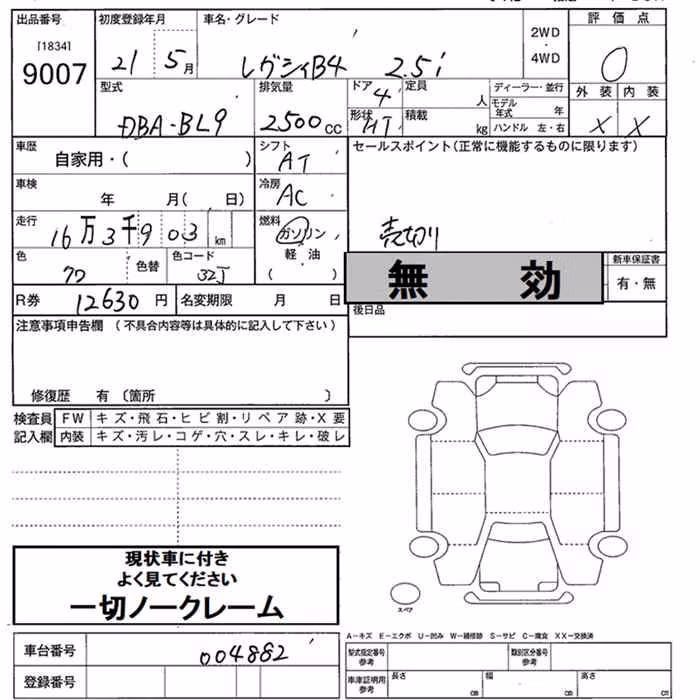 出品番号 初度登録年月 車名・グレード 2WD ・ 4WD 評価点
[1834]
9007 21 5月 レグシィB4 2.5i 0
外装 内装
X X
型式 排気量 ドア 4 定員 人 ディーラー・並行
モデル年式 年
DBA-BL9 2500cc 形状 HT 積載 kg ハンドル 左・右
車歴 シフト セールスポイント(正常に機能するものに限ります)
自家用・( ) AT
車検 冷房
年 月( 日) AC
走行 燃料
16万3千903km ガソリン 売切り
軽油
( )
色 色替 色コード 新車保証書
32J 無効 有・無
R券 12630円 名変期限 月 日 後日品
注意事項申告欄(不具合内容等は具体的に記入して下さい)
修復歴 有 〔箇所 〕
検査員 FW キズ・飛石・ヒビ割・リペア跡・X要
記入欄 内装 キズ・汚レ・コゲ・穴・スレ・キレ・破レ
現状車に付き
よく見てください
一切ノークレーム
スペア
A−キズ E−エクボ U−凹み W−補修跡 S−サビ C−腐食 XX−交換済
車台番号 004882 型式指定番号 参考 類別区分番号 参考
登録番号 車庫証明用 参考 長さ cm 幅 cm 高さ cm